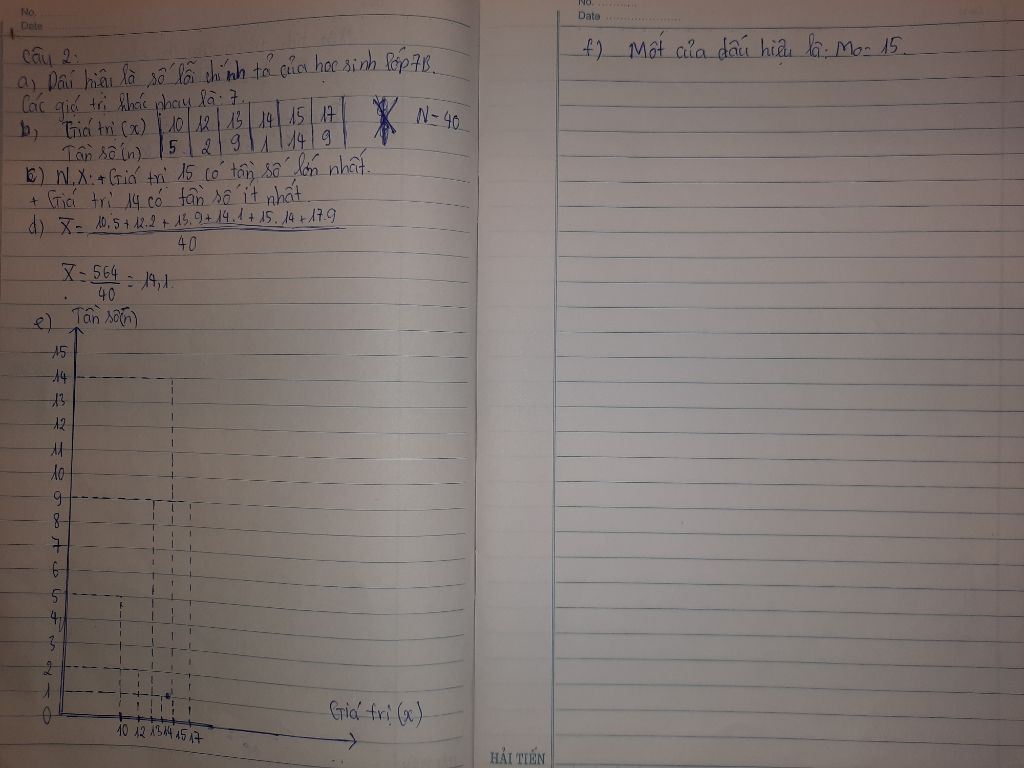 No.
Date
Câu 2:
a, Dấu hiệu là số lỗi chính tả của học sinh lớp 7B.
Các giá trị khác nhau là: 7.
b, Giá trị (x) 10 12 13 14 15 17 N = 40
Tần số (n) 5 2 9 1 14 9
c) N,X: + Giá trị 15 có tần số lớn nhất.
+ Giá trị 14 có tần số ít nhất.
d) X̄ = 10.5+12.2+13.9+14.1+15.14+17.9
40
X̄ = 564/40 = 14,1.
e) Tần số (n)
15
14
13
12
11
10
9
8
7
6
5
4
3
2
1
0
10 12 13 14 15 17
Giá trị (x)
No.
Date
f) Mốt của dấu hiệu là: Mo = 15.
HẢI TIẾN